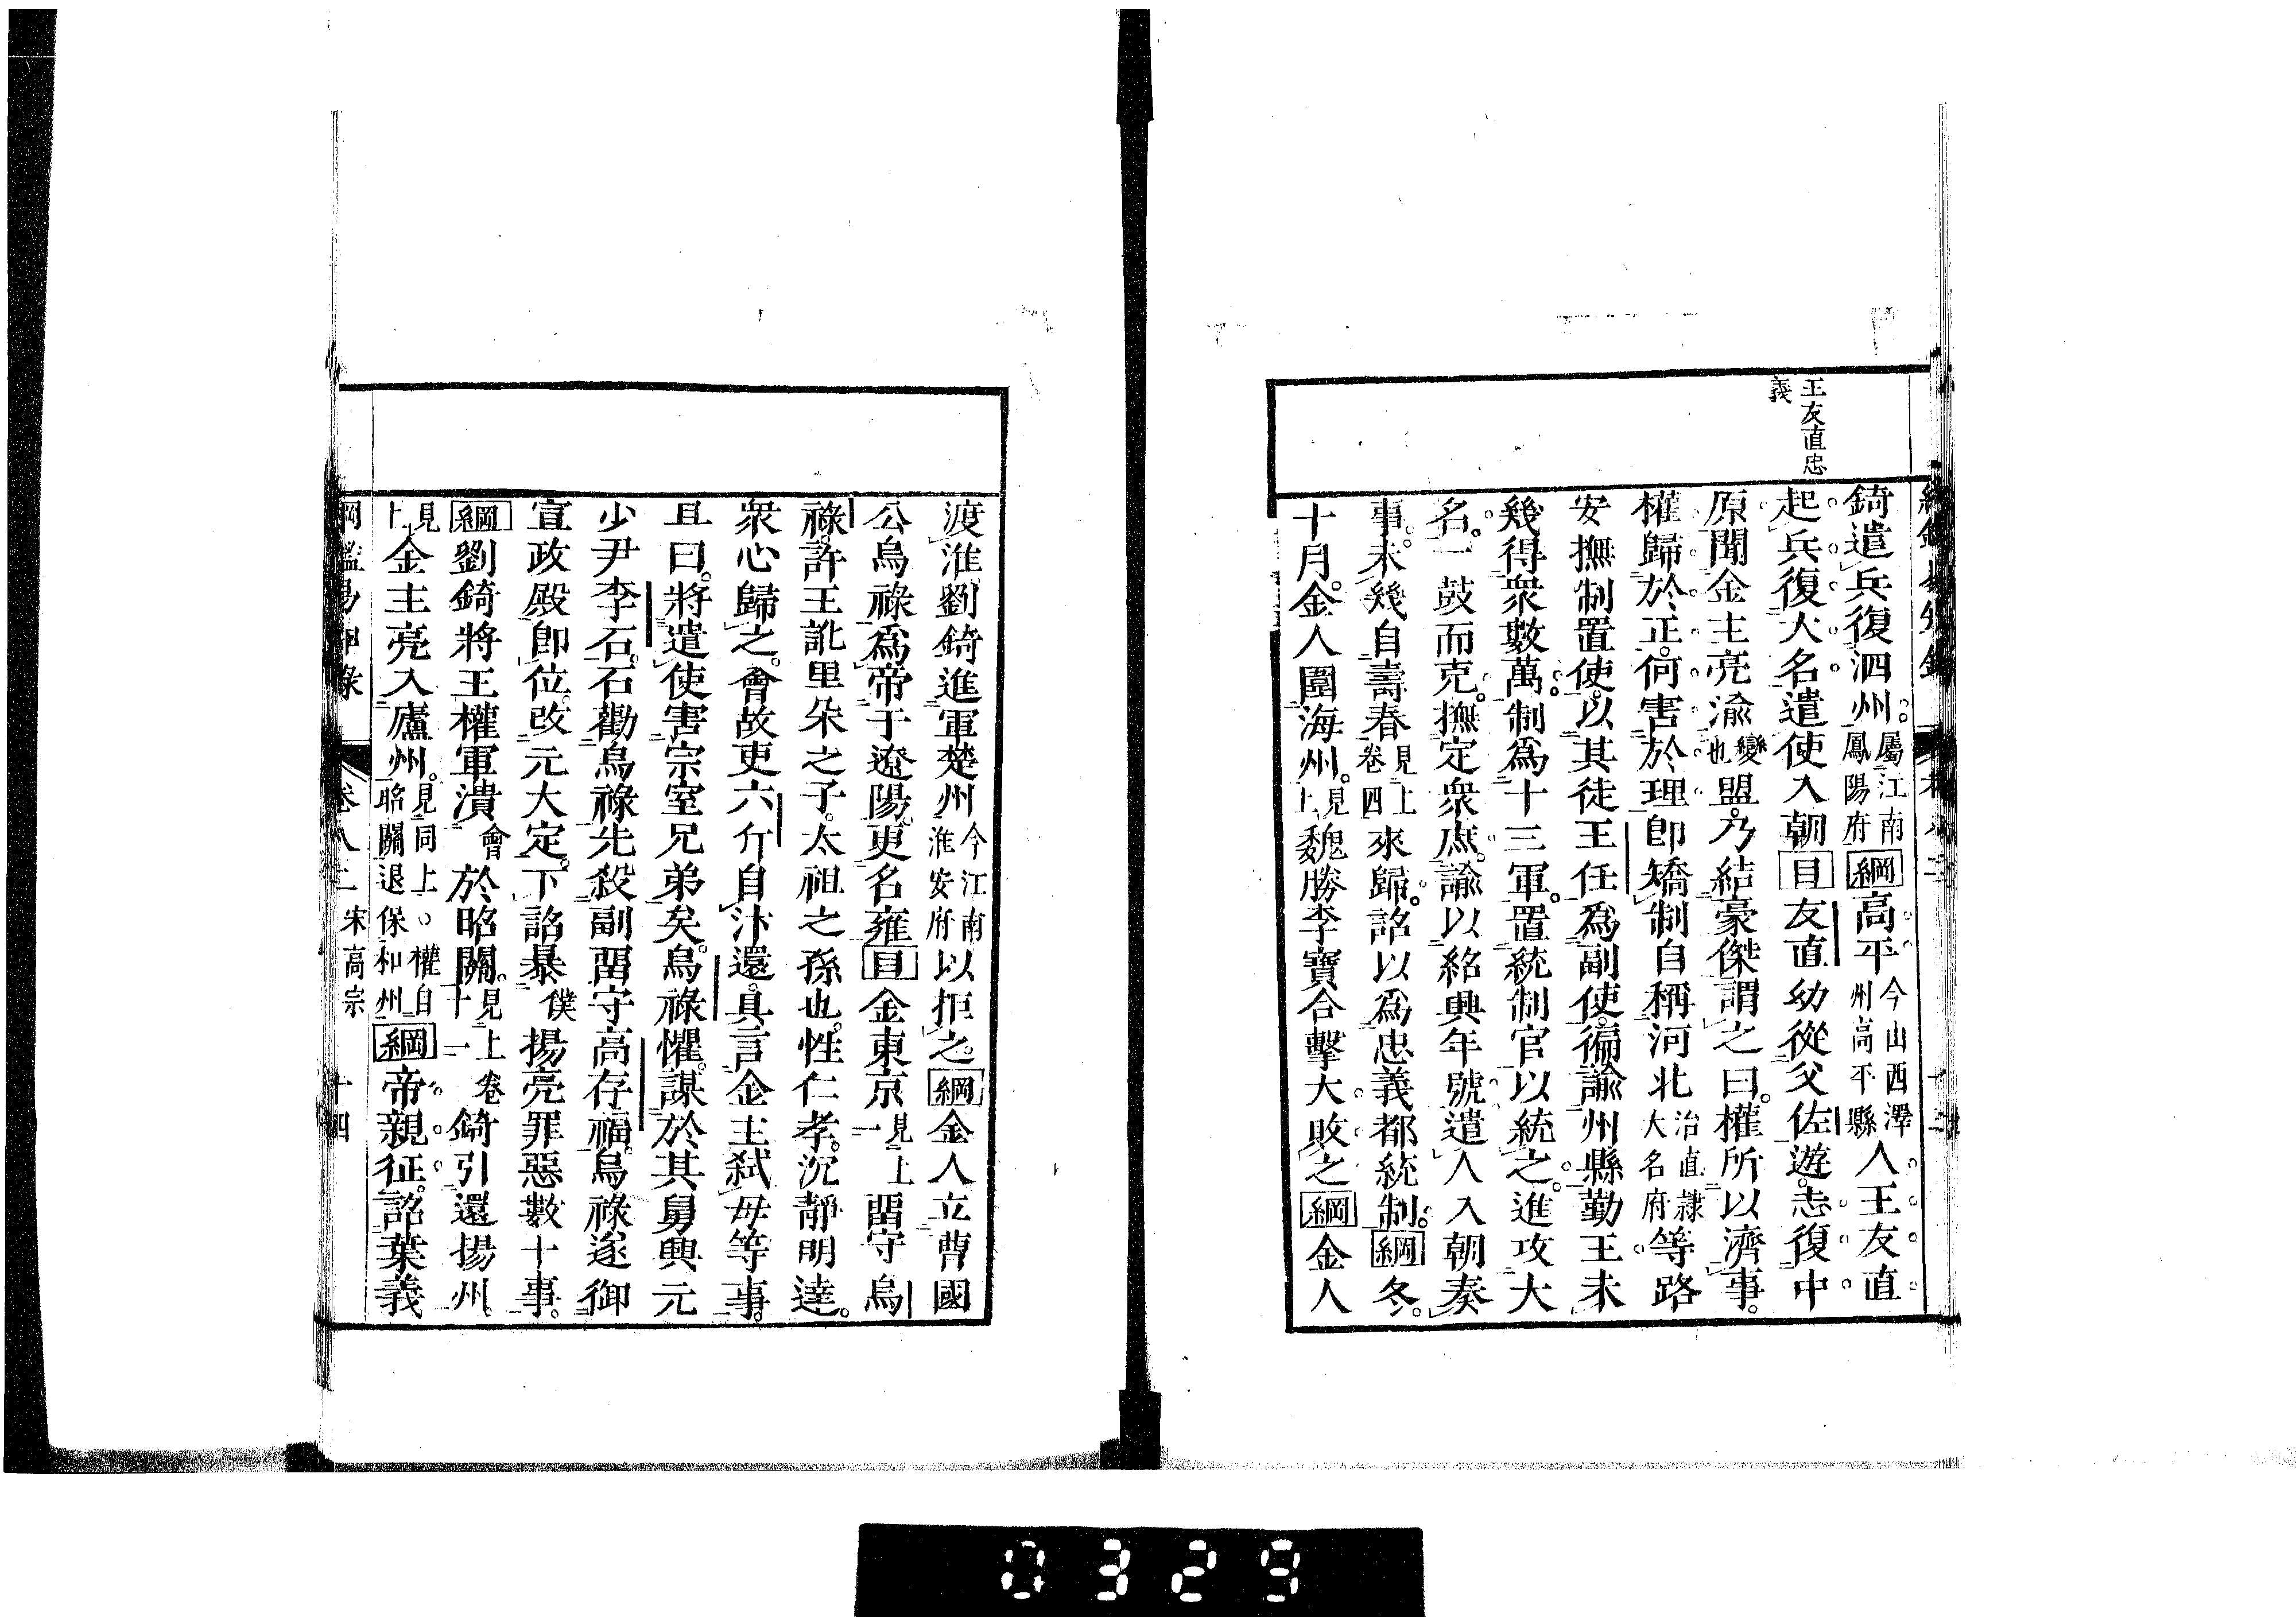 王友直忠
義
錡遣兵復泗州。屬江南鳳陽府綱高平今山西澤州高平縣人王友直
起兵復大名遣使入朝目友直幼從父佐遊。志復中
原聞金主亮渝變也盟。乃結豪傑謂之曰。權所以濟事。
權歸於正。何害於理卽矯制自稱河北治直隷大名府等路
安撫制置使。以其徒王任爲副使。徧諭州縣勤王未
幾得衆數萬。制爲十三軍。置統制官以統之。進攻大
名。一鼓而克。撫定衆庶。諭以紹興年號遣人入朝奏
事。未幾自壽春見上卷四來歸。詔以爲忠義都統制。綱冬。
十月。金人圍海州。見上魏勝李寶合擊大敗之綱金人
渡淮。劉錡進軍楚州今江南淮安府以拒之綱金人立曹國
公烏祿爲帝于遼陽。更名雍目金東京見上一畱守烏
祿。許王訛里朵之子。太祖之孫也。性仁孝。沉靜明達。
衆心歸之。會故吏六斤自汴還。具言金主弑母等事。
且曰。將遣使害宗室兄弟矣。烏祿懼。謀於其舅興元
少尹李石。石勸烏祿先殺副畱守高存福。烏祿遂御
宣政殿卽位。改元大定。下詔暴僕揚亮罪惡數十事。
綱劉錡將王權軍潰會於昭關。見上卷十一錡引還揚州。
見上金主亮入廬州。見同上。權自昭關退保和州綱帝親征。詔葉義
綱鑑易知錄 卷八二 宋高宗 十四